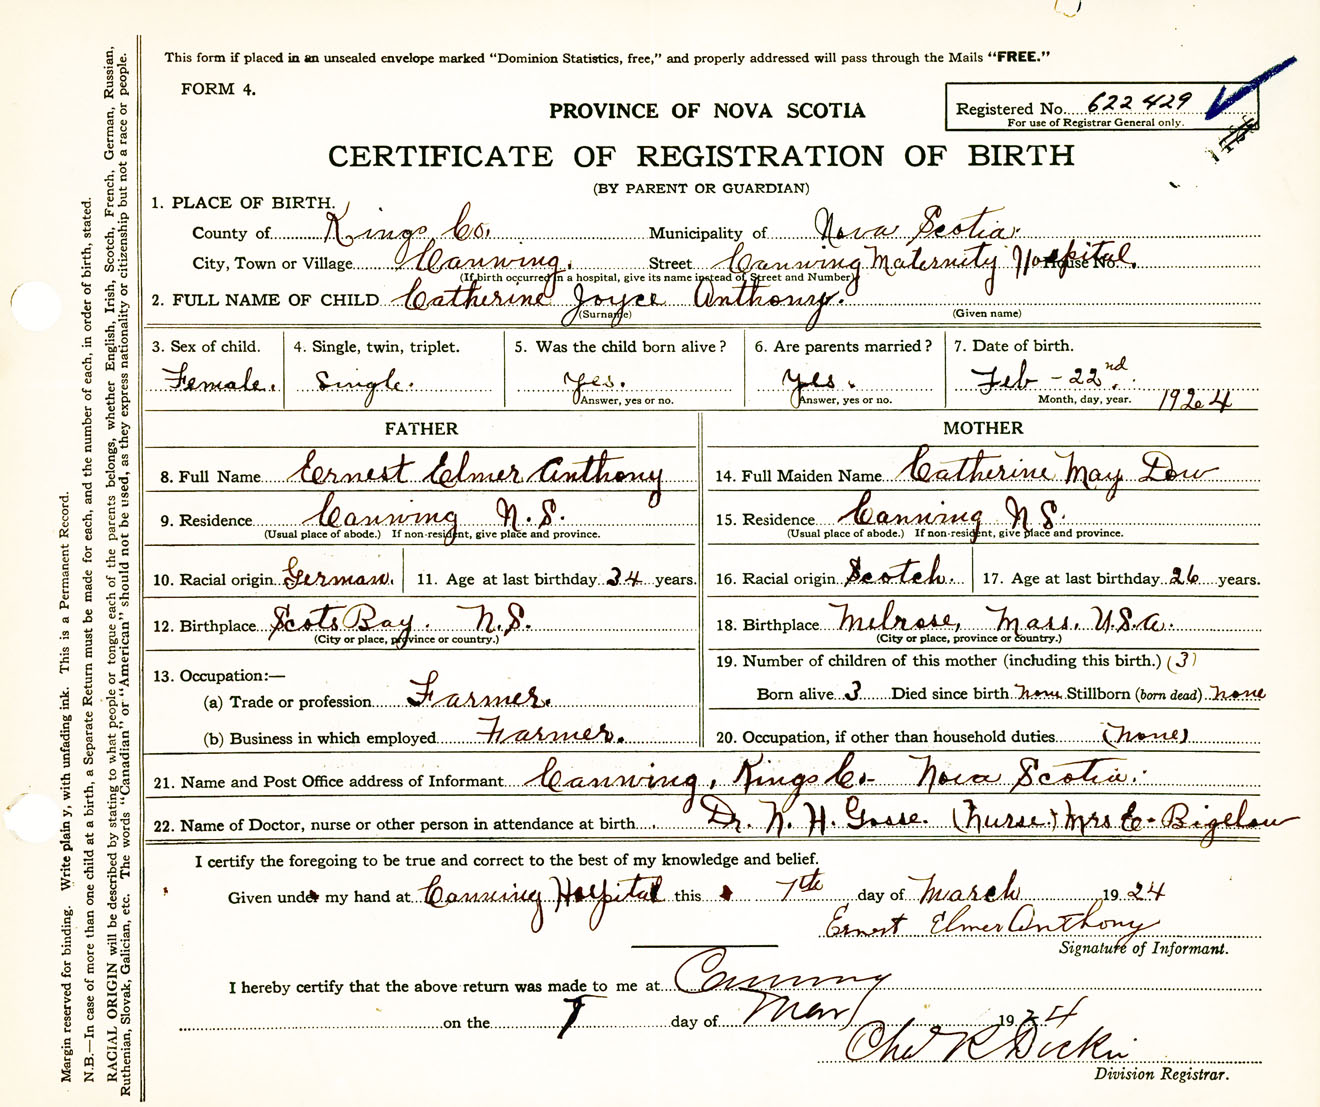 This form if placed in an unsealed envelope marked "Dominion Statistics, free," and properly addressed will pass through the Mails "FREE."
FORM 4.
Registered No. 622429
For use of Registrar General only.
PROVINCE OF NOVA SCOTIA
CERTIFICATE OF REGISTRATION OF BIRTH
(BY PARENT OR GUARDIAN)
1. PLACE OF BIRTH.
County of Kings Co. Municipality of Nova Scotia.
City, Town or Village Canning. Street Canning Maternity Hospital. House No.
(If birth occurred in a hospital, give its name instead of Street and Number)
2. FULL NAME OF CHILD Catherine Joyce Anthony.
(Surname) (Given name)
3. Sex of child. 4. Single, twin, triplet. 5. Was the child born alive? 6. Are parents married? 7. Date of birth.
Female. Single. Yes. Yes. Feb - 22nd. 1924
Answer, yes or no. Answer, yes or no. Month, day, year.
FATHER MOTHER
8. Full Name Ernest Elmer Anthony 14. Full Maiden Name Catherine May Dow
9. Residence Canning N.S. 15. Residence Canning N.S.
(Usual place of abode.) If non-resident, give place and province. (Usual place of abode.) If non-resident, give place and province.
10. Racial origin German. 11. Age at last birthday 34 years. 16. Racial origin Scotch. 17. Age at last birthday 26 years.
12. Birthplace Scots Bay. N.S. 18. Birthplace Melrose, Mass. U.S.A.
(City or place, province or country.) (City or place, province or country.)
13. Occupation:— 19. Number of children of this mother (including this birth.) (3)
(a) Trade or profession Farmer. Born alive 3 Died since birth none Stillborn (born dead) none
(b) Business in which employed Farmer. 20. Occupation, if other than household duties (none)
21. Name and Post Office address of Informant Canning, Kings Co- Nova Scotia.
22. Name of Doctor, nurse or other person in attendance at birth Dr. N. H. Gosse. (Nurse) Mrs E. Bigelow
I certify the foregoing to be true and correct to the best of my knowledge and belief.
Given under my hand at Canning Hospital this 7th day of March 1924
Ernest Elmer Anthony
Signature of Informant.
I hereby certify that the above return was made to me at Canning
on the 7 day of Mar 1924
Chas R Dickie
Division Registrar.
Margin reserved for binding. Write plainly, with unfading ink. This is a Permanent Record.
N.B.—In case of more than one child at a birth, a Separate Return must be made for each, and the number of each, in order of birth, stated.
RACIAL ORIGIN will be described by stating to what people or tongue each of the parents belongs, whether English, Irish, Scotch, French, German, Russian,
Ruthenian, Slovak, Galician, etc. The words "Canadian" or "American" should not be used, as they express nationality or citizenship but not a race or people.